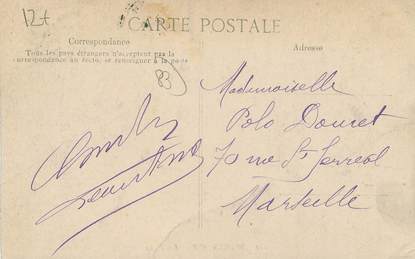 12+
CARTE POSTALE
Correspondance
Tous les pays étrangers n'acceptent pas la
correspondance au recto, se renseigner à la poste
83
Adresse
Mademoiselle
Polo Douret
70 rue St Ferreol
Marseille